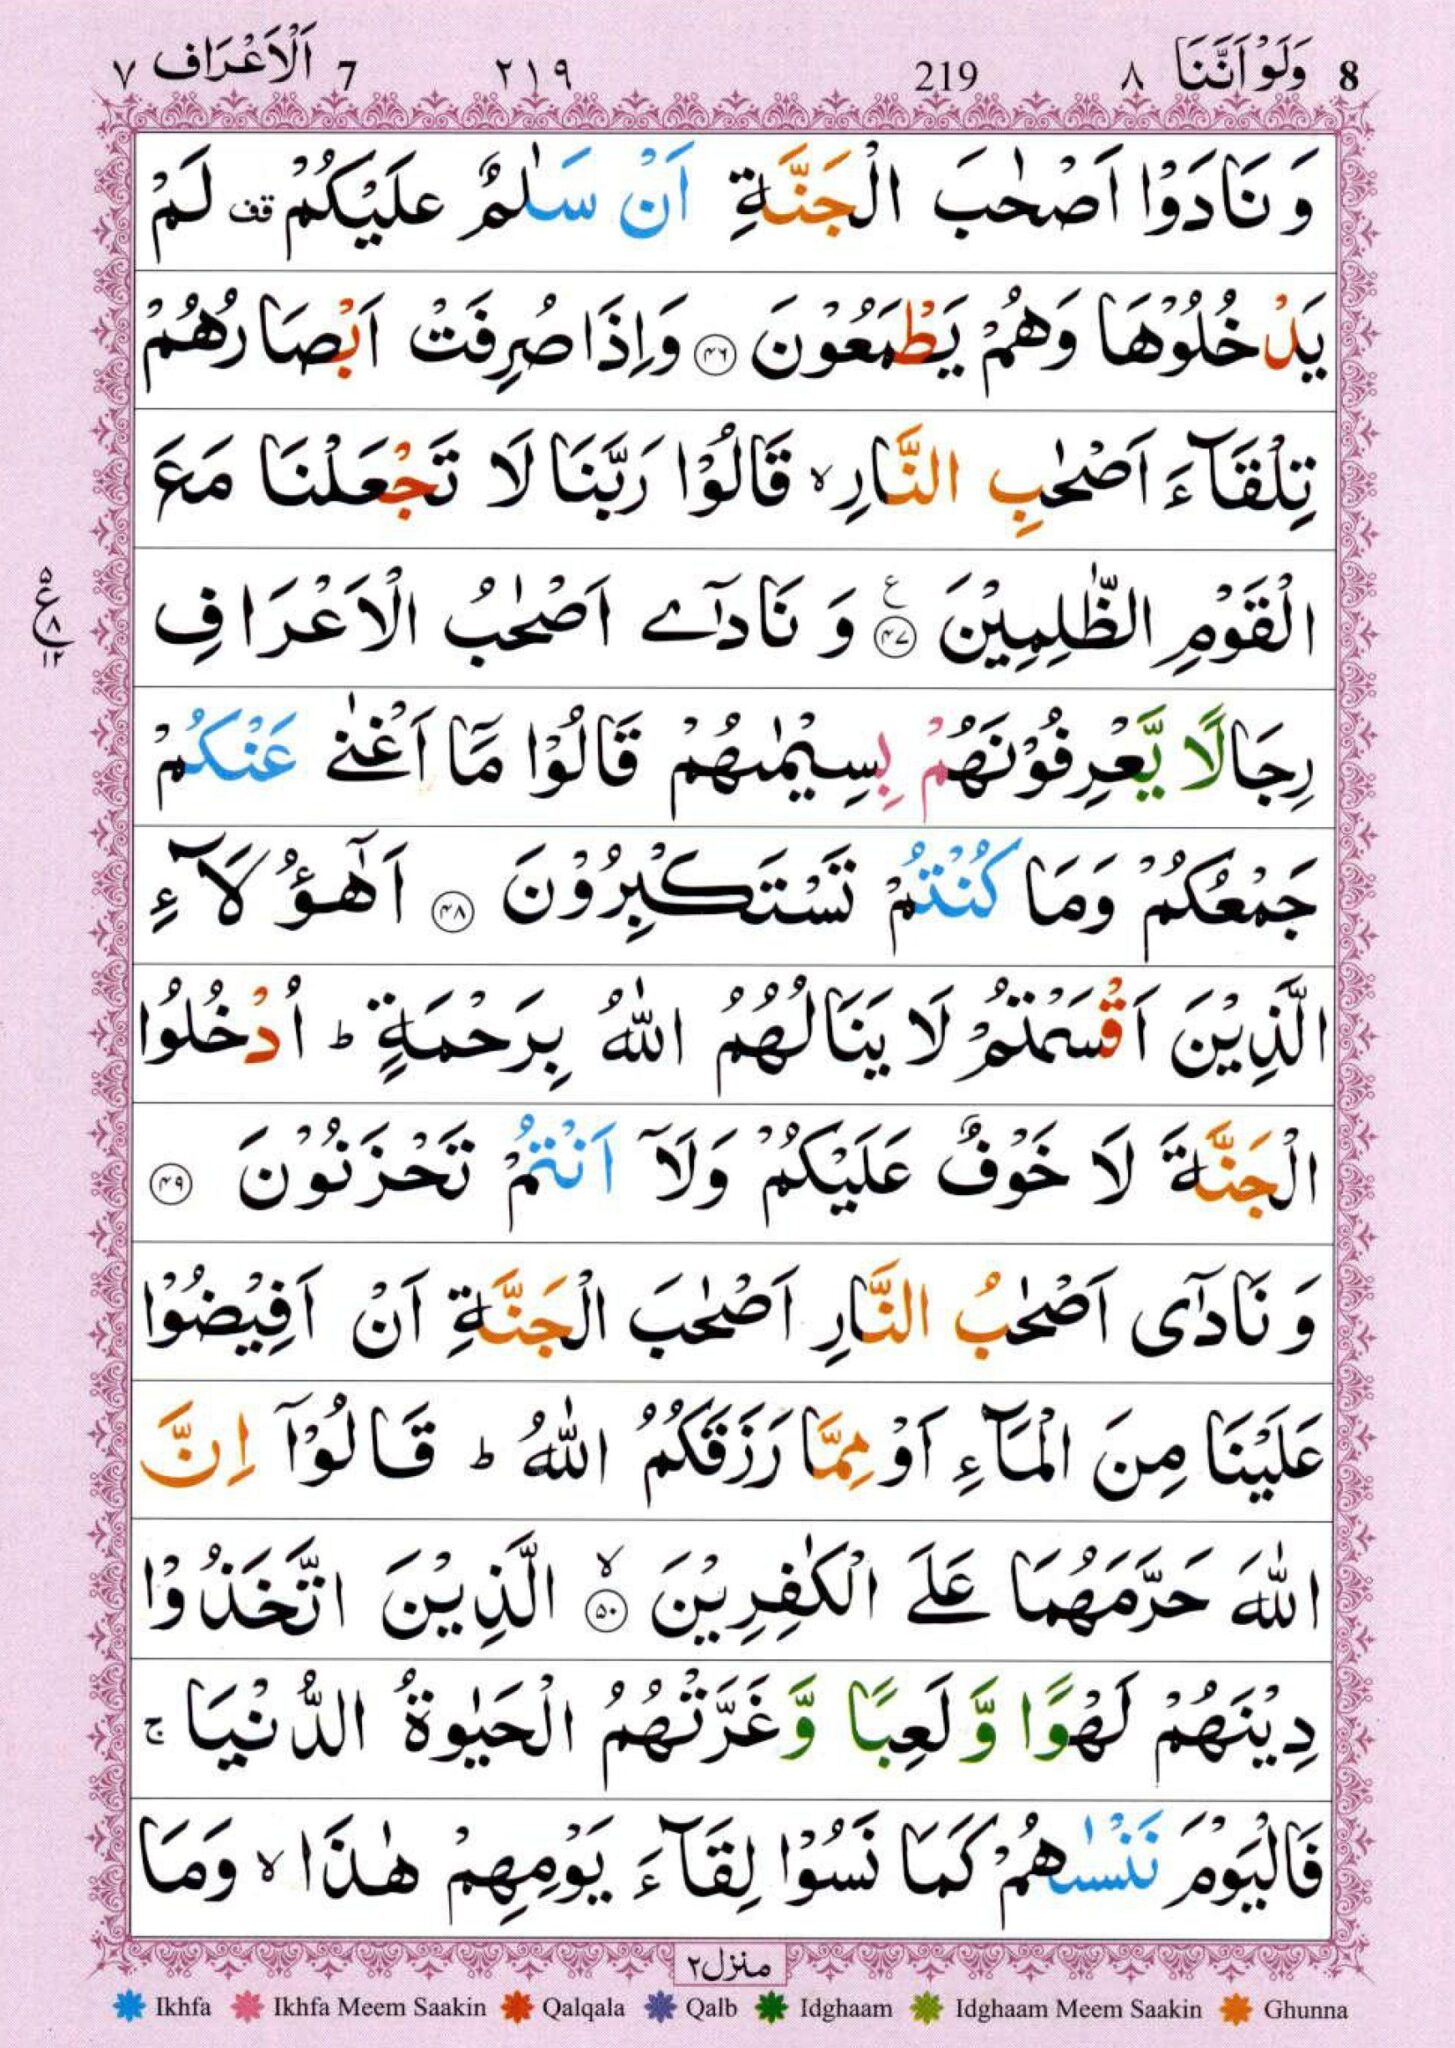 8 وَلَوْ اَنَّنَا ٨ 219 ٢١٩ 7 اَلْاَعْرَاف ٧
وَ نَادَوْا اَصْحٰبَ الْجَنَّةِ اَنْ سَلٰمٌ عَلَيْكُمْ قف لَمْ
يَدْخُلُوْهَا وَهُمْ يَطْمَعُوْنَ ﴿۴۶﴾ وَاِذَا صُرِفَتْ اَبْصَارُهُمْ
تِلْقَآءَ اَصْحٰبِ النَّارِ ۙ قَالُوْا رَبَّنَا لَا تَجْعَلْنَا مَعَ
الْقَوْمِ الظّٰلِمِيْنَ ﴿۴۷﴾ ع وَ نَادٰٓى اَصْحٰبُ الْاَعْرَافِ
ع ۵ ٨ ١٢
رِجَالًا يَّعْرِفُوْنَهُمْ بِسِيْمٰىهُمْ قَالُوْا مَآ اَغْنٰى عَنْكُمْ
جَمْعُكُمْ وَمَا كُنْتُمْ تَسْتَكْبِرُوْنَ ﴿۴۸﴾ اَهٰٓؤُلَآءِ
الَّذِيْنَ اَقْسَمْتُمْ لَا يَنَالُهُمُ اللّٰهُ بِرَحْمَةٍ ؕ اُدْخُلُوا
الْجَنَّةَ لَا خَوْفٌ عَلَيْكُمْ وَلَآ اَنْتُمْ تَحْزَنُوْنَ ﴿۴۹﴾
وَ نَادٰٓى اَصْحٰبُ النَّارِ اَصْحٰبَ الْجَنَّةِ اَنْ اَفِيْضُوْا
عَلَيْنَا مِنَ الْمَآءِ اَوْ مِمَّا رَزَقَكُمُ اللّٰهُ ؕ قَالُوْٓا اِنَّ
اللّٰهَ حَرَّمَهُمَا عَلَى الْكٰفِرِيْنَ ﴿۵۰﴾ ۙ الَّذِيْنَ اتَّخَذُوْا
دِيْنَهُمْ لَهْوًا وَّلَعِبًا وَّغَرَّتْهُمُ الْحَيٰوةُ الدُّنْيَا ۚ
فَالْيَوْمَ نَنْسٰىهُمْ كَمَا نَسُوْا لِقَآءَ يَوْمِهِمْ هٰذَا ۙ وَمَا
منزل ٢
Ikhfa Ikhfa Meem Saakin Qalqala Qalb Idghaam Idghaam Meem Saakin Ghunna